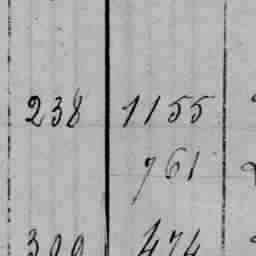 238 1155
761
300 474